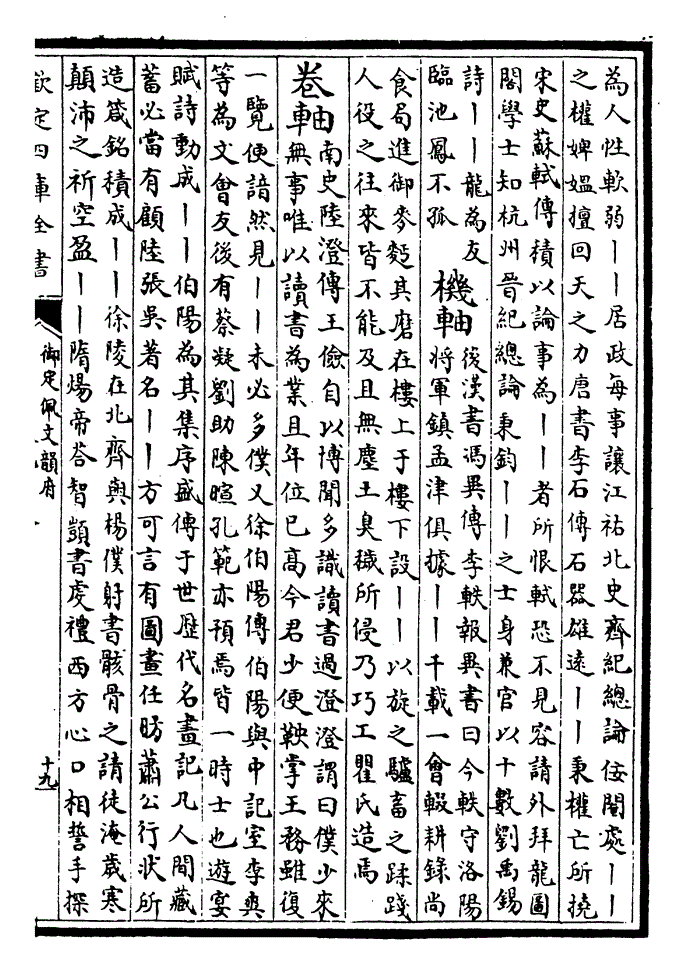 為人性軟弱丨丨居政每事讓江祏北史齊紀總論佞閹處丨丨
之權婢媼擅回天之力唐書李石傳石器雄遠丨丨秉權亡所撓
宋史蘇軾傳積以論事為丨丨者所恨軾恐不見容請外拜龍圖
閣學士知杭州晉紀總論秉鈞丨丨之士身兼官以十數劉禹錫
詩丨丨龍為友
臨池鳳不孤
機軸
後漢書馮異傳李軼報異書曰今軼守洛陽
將軍鎮孟津俱據丨丨千載一會輟耕錄尚
食局進御麥麪其磨在樓上于樓下設丨丨以旋之驢畜之蹂踐
人役之往來皆不能及且無塵土臭穢所侵乃巧工瞿氏造焉
卷軸
南史陸澄傳王儉自以博聞多識讀書過澄澄謂曰僕少來
無事唯以讀書為業且年位已高今君少便鞅掌王務雖復
一覽便諳然見丨丨未必多僕又徐伯陽傳伯陽與中記室李爽
等為文會友後有蔡凝劉助陳暄孔範亦預焉皆一時士也遊宴
賦詩動成丨丨伯陽為其集序盛傳于世歷代名畫記凡人間藏
蓄必當有顧陸張吳著名丨丨方可言有圖畫任昉蕭公行狀所
造箴銘積成丨丨徐陵在北齊與楊僕射書骸骨之請徒淹歲寒
顛沛之祈空盈丨丨隋煬帝荅智顗書虔禮西方心口相誓手探
欽定四庫全書
御定佩文韻府
十九